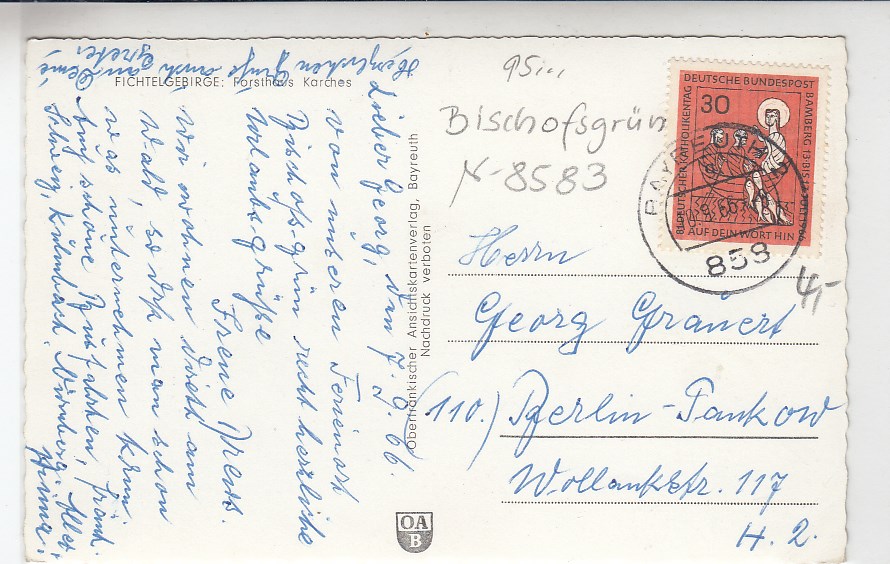 FICHTELGEBIRGE: Forsthaus Karches
Lieber Georg, den 7.9.66.
von unseren Ferienort
Bischofsgrün recht herzliche
Urlaubsgrüße
Irene
Wir wohnen direkt am
Wald, so daß man schon
was unternehmen kann.
Auch schöne Busfahrten, fränk.
Schweiz, Kulmbach, Nürnberg. Alles
prima.
Herzlichen Gruß auch
an Deine
Oberfränkischer Ansichtskartenverlag, Bayreuth
Nachdruck verboten
OA
B
95
Bischofsgrün
N-8583
DEUTSCHE BUNDESPOST
30
BAMBERG 13-BIS 17. JULI 1966
81. DEUTSCHER KATHOLIKENTAG
AUF DEIN WORT HIN
BAYREUTH
858
4,-
Herrn
Georg Granert
(110.) Berlin-Pankow
Wollankstr. 117
H. 2.